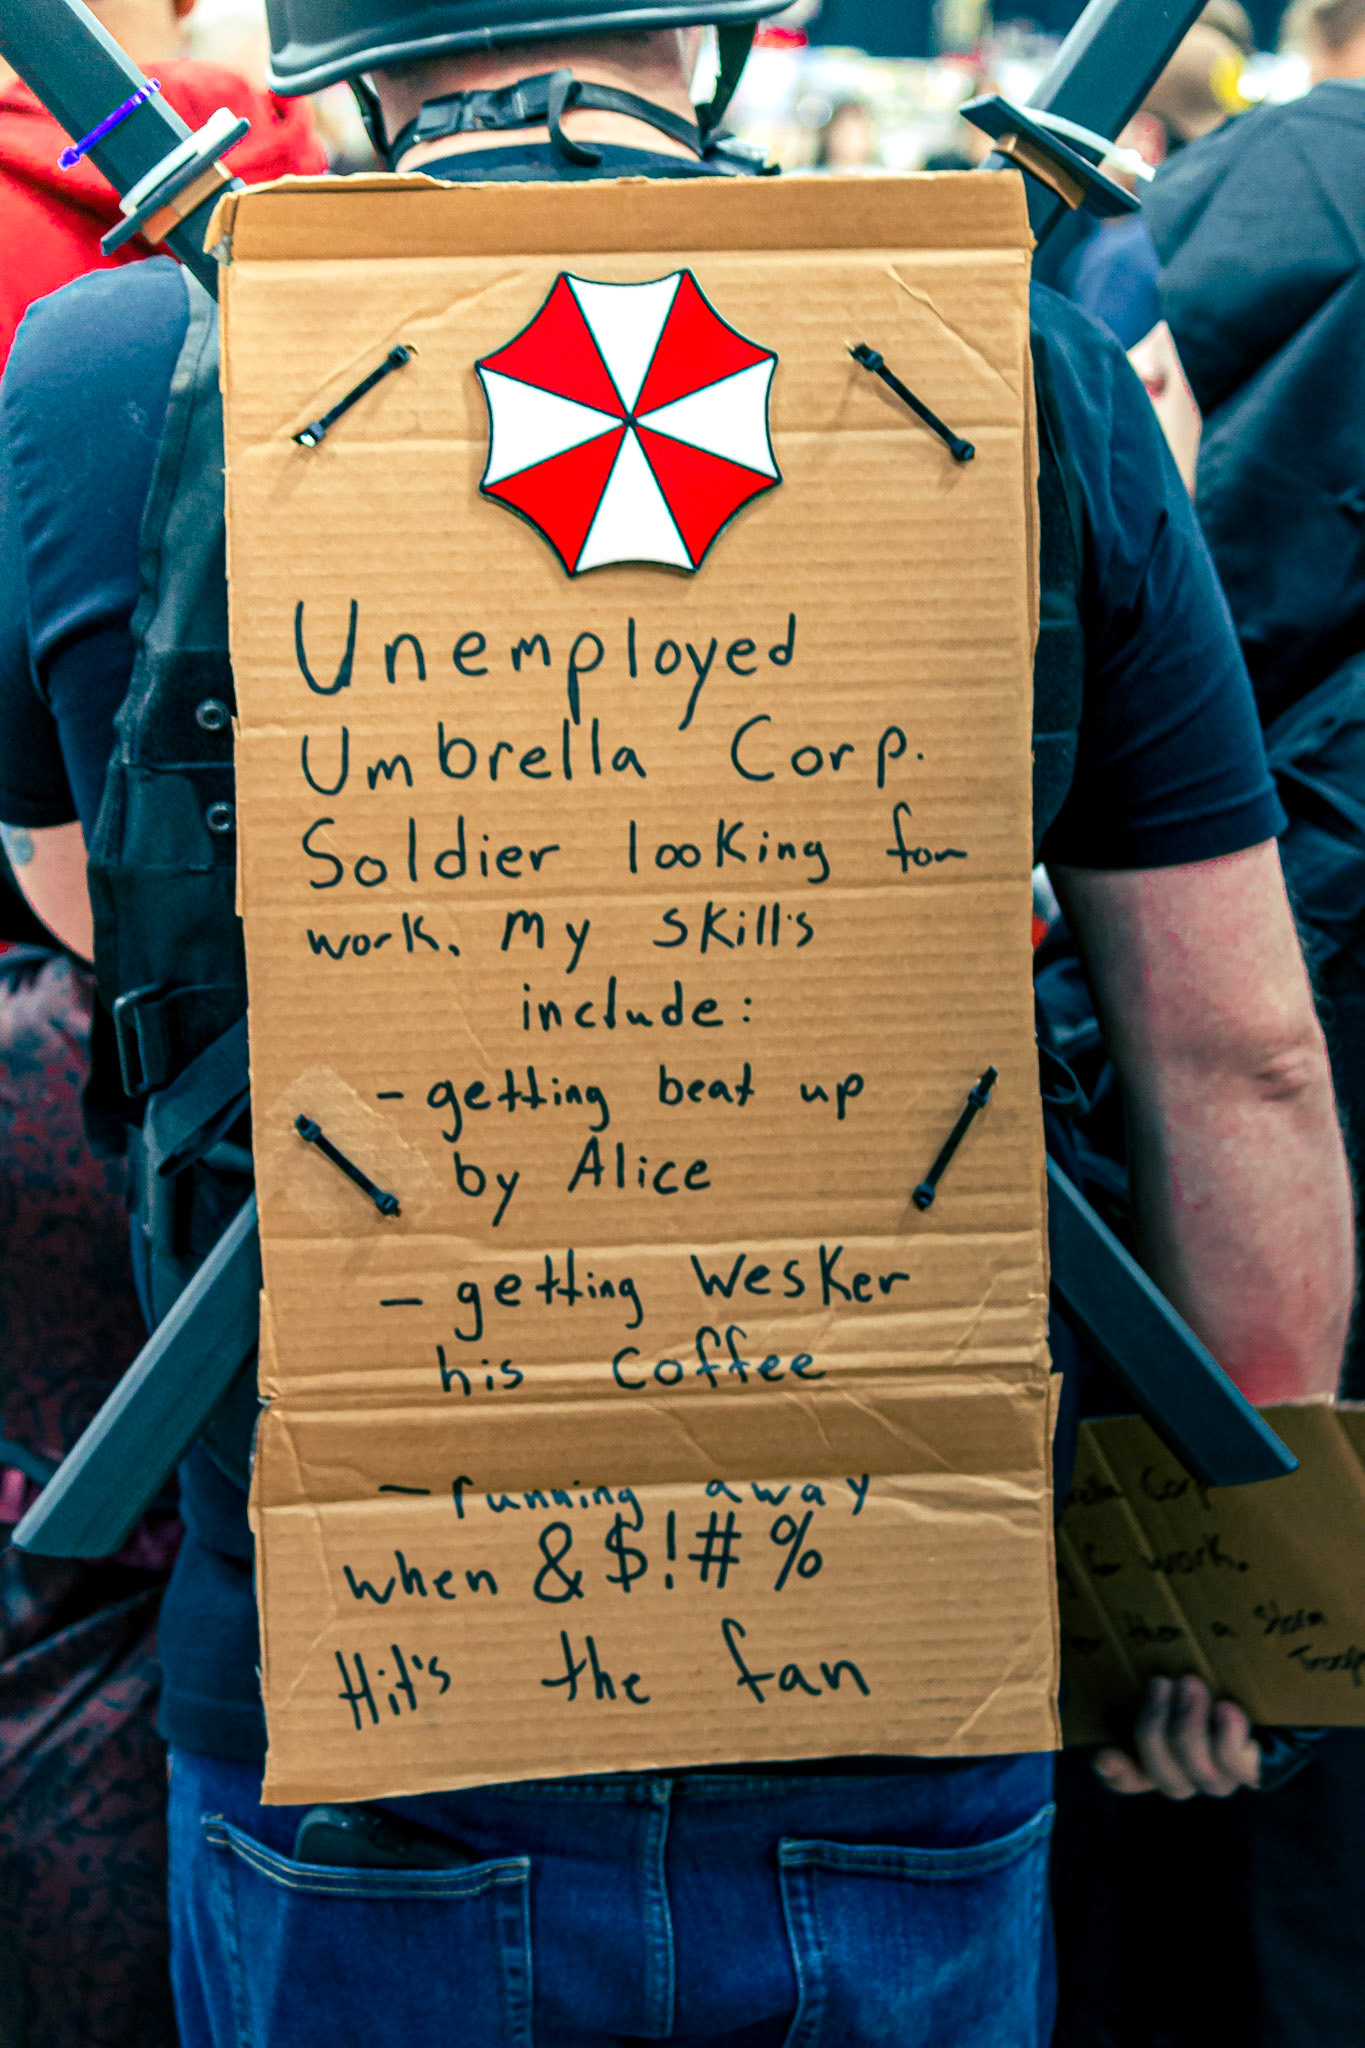 Unemployed
Umbrella Corp.
Soldier looking for
work. My skill's
include:
- getting beat up
by Alice
- getting Wesker
his coffee
- running away
when &$!#%
Hit's the fan
Corp
for work.
then a Storm
Troop